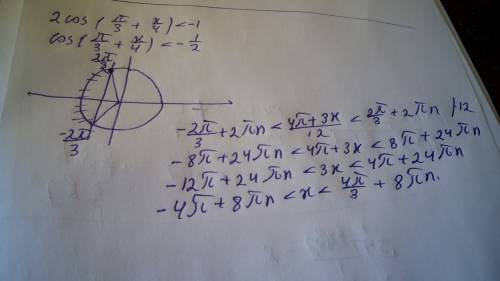 2cos(π/3 + x/4) < -1
cos(π/3 + x/4) < -1/2
2π/3
-2π/3
-2π/3 + 2πn < (4π+3x)/12 < 2π/3 + 2πn /·12
-8π + 24πn < 4π + 3x < 8π + 24πn
-12π + 24πn < 3x < 4π + 24πn
-4π + 8πn < x < 4π/3 + 8πn.